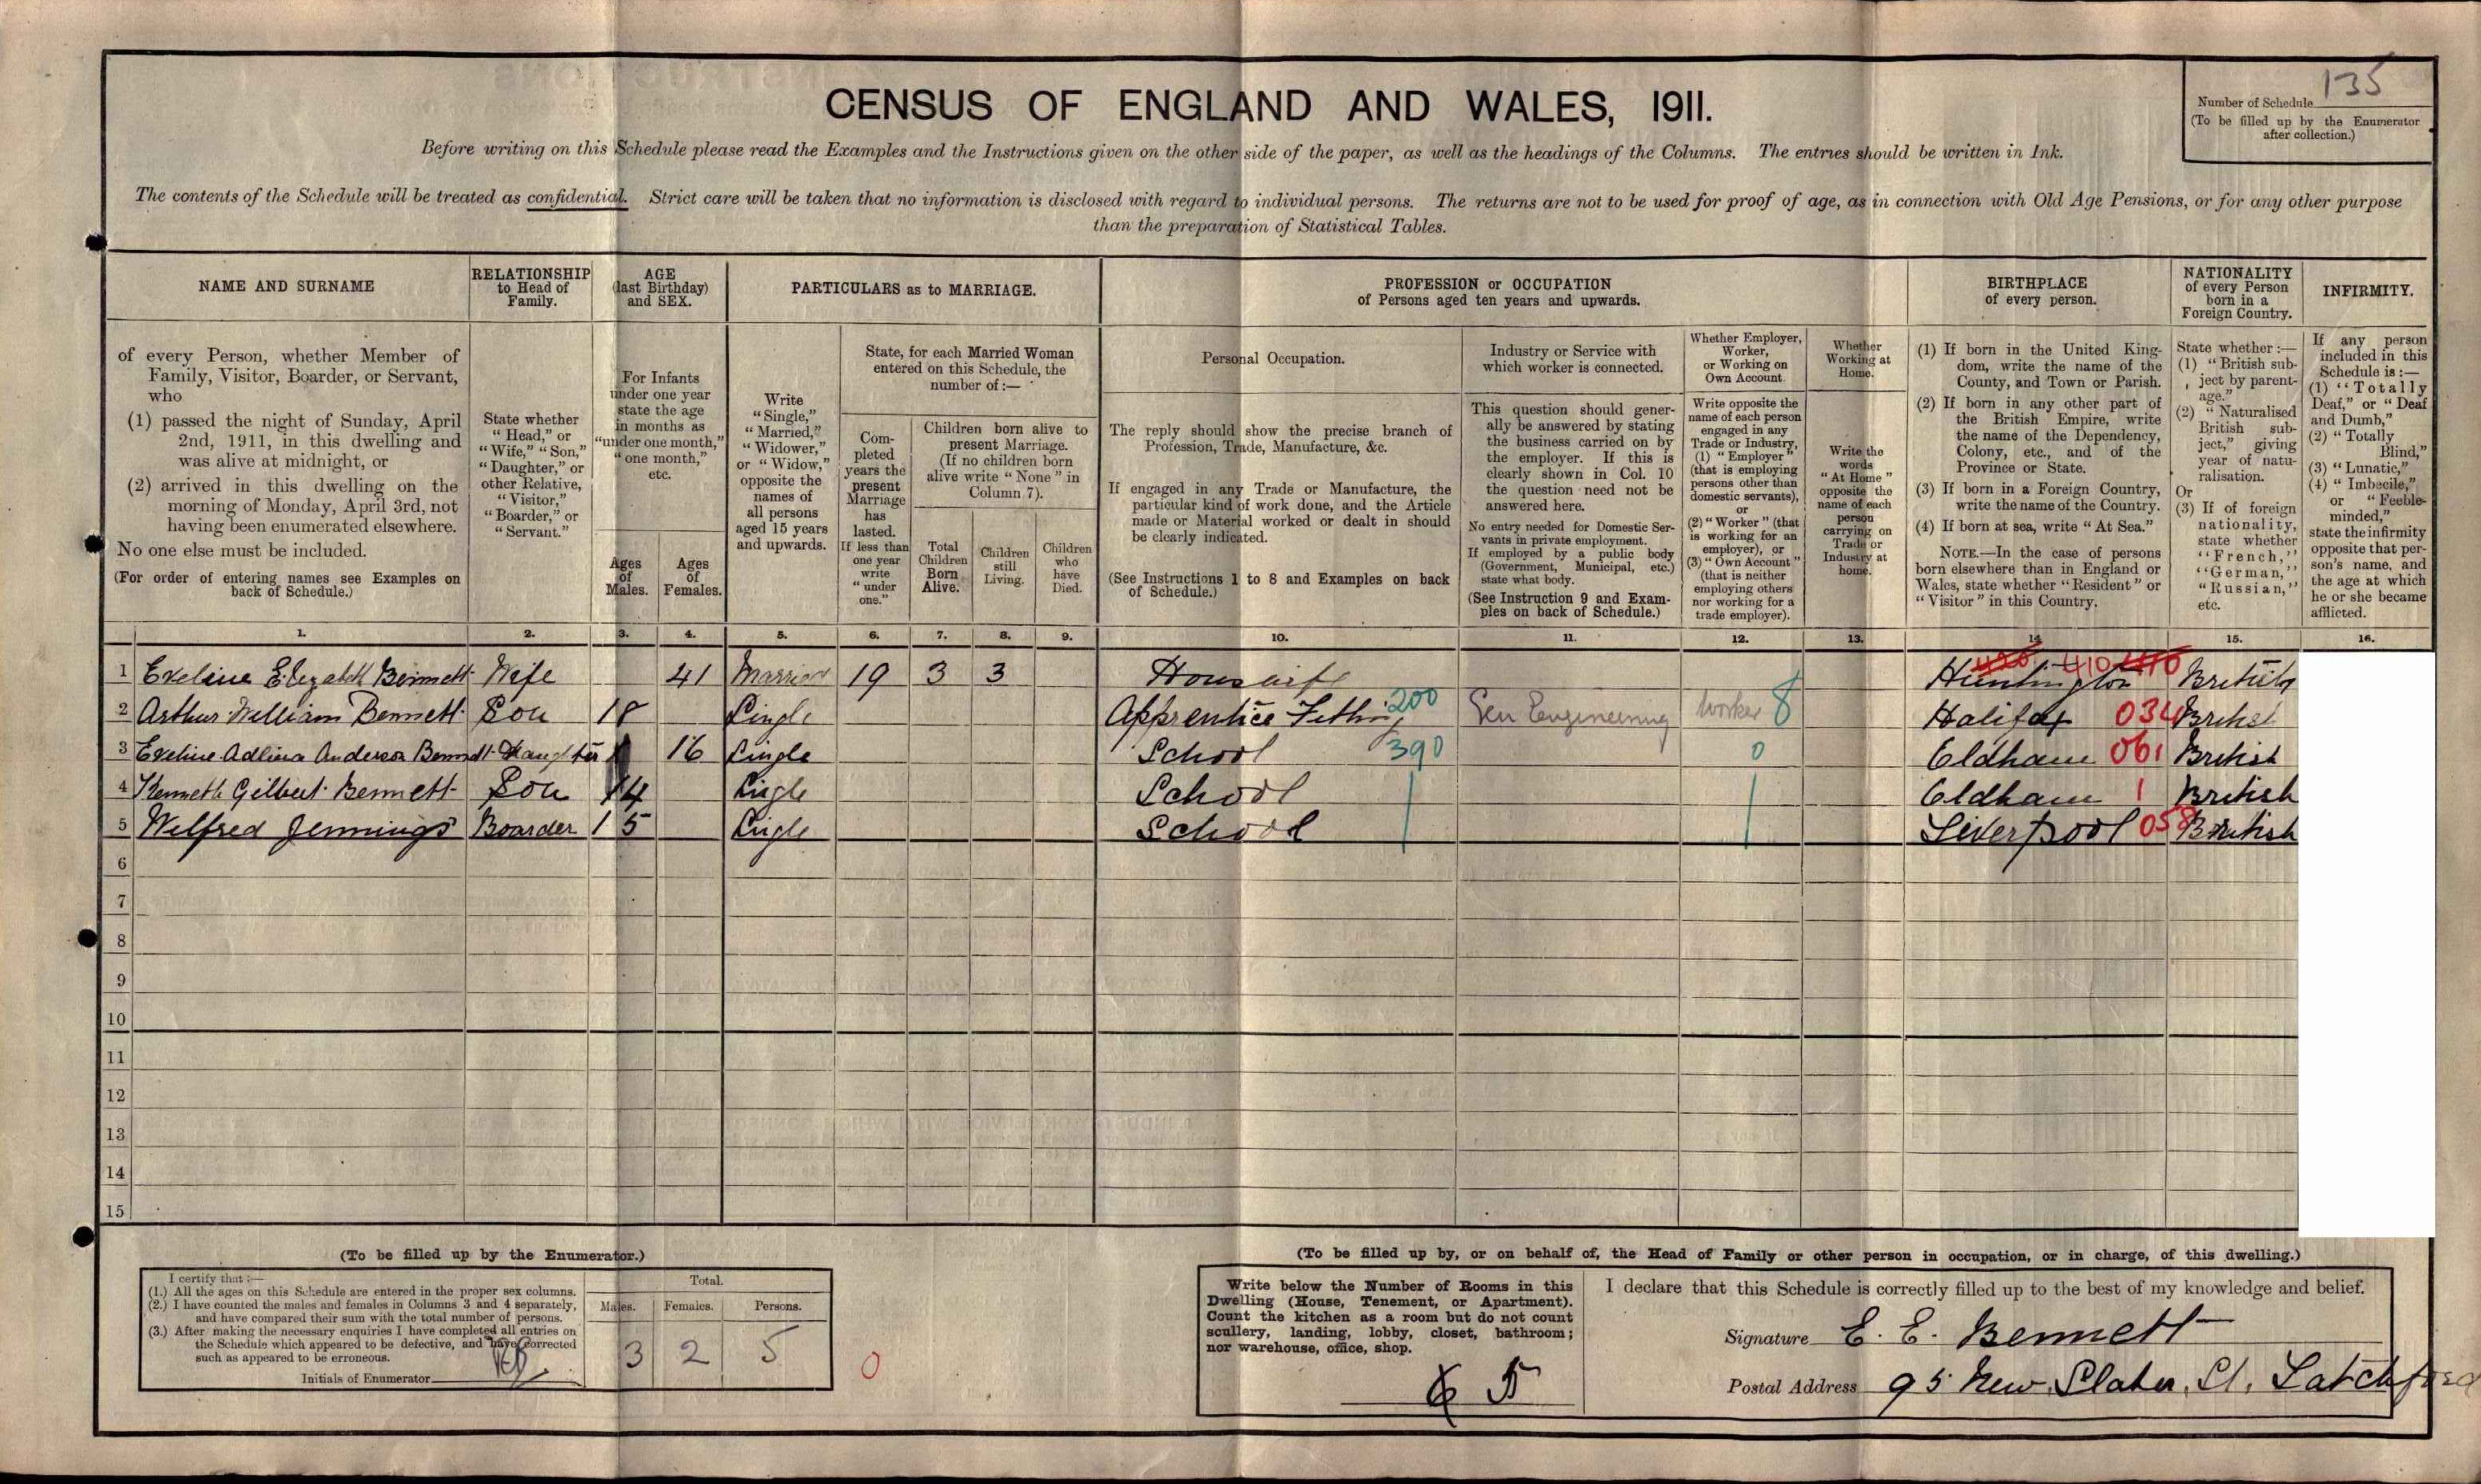 135
CENSUS OF ENGLAND AND WALES, 1911.
Number of Schedule
(To be filled up by the Enumerator
after collection.)
Before writing on this Schedule please read the Examples and the Instructions given on the other side of the paper, as well as the headings of the Columns. The entries should be written in Ink.
The contents of the Schedule will be treated as confidential. Strict care will be taken that no information is disclosed with regard to individual persons. The returns are not to be used for proof of age, as in connection with Old Age Pensions, or for any other purpose
than the preparation of Statistical Tables.
NAME AND SURNAME
of every Person, whether Member of
Family, Visitor, Boarder, or Servant,
who
(1) passed the night of Sunday, April
2nd, 1911, in this dwelling and
was alive at midnight, or
(2) arrived in this dwelling on the
morning of Monday, April 3rd, not
having been enumerated elsewhere.
No one else must be included.
(For order of entering names see Examples on
back of Schedule.)
RELATIONSHIP
to Head of
Family.
State whether
"Head," or
"Wife," "Son,"
"Daughter," or
other Relative,
"Visitor,"
"Boarder," or
"Servant."
AGE
(last Birthday)
and SEX.
For Infants
under one year
state the age
in months as
"under one month,"
"one month,"
etc.
Ages
of
Males.
Ages
of
Females.
PARTICULARS as to MARRIAGE.
Write
"Single,"
"Married,"
"Widower,"
or "Widow,"
opposite the
names of
all persons
aged 15 years
and upwards.
State, for each Married Woman
entered on this Schedule, the
number of:—
Com-
pleted
years the
present
Marriage
has
lasted.
If less than
one year
write
"under
one."
Children born alive to
present Marriage.
(If no children born
alive write "None" in
Column 7).
Total
Children
Born
Alive.
Children
still
Living.
Children
who
have
Died.
PROFESSION or OCCUPATION
of Persons aged ten years and upwards.
Personal Occupation.
The reply should show the precise branch of
Profession, Trade, Manufacture, &c.
If engaged in any Trade or Manufacture, the
particular kind of work done, and the Article
made or Material worked or dealt in should
be clearly indicated.
(See Instructions 1 to 8 and Examples on back
of Schedule.)
Industry or Service with
which worker is connected.
This question should gener-
ally be answered by stating
the business carried on by
the employer. If this is
clearly shown in Col. 10
the question need not be
answered here.
No entry needed for Domestic Ser-
vants in private employment.
If employed by a public body
(Government, Municipal, etc.)
state what body.
(See Instruction 9 and Exam-
ples on back of Schedule.)
Whether Employer,
Worker,
or Working on
Own Account.
Write opposite the
name of each person
engaged in any
Trade or Industry,
(1) "Employer"
(that is employing
persons other than
domestic servants),
or
(2) "Worker" (that
is working for an
employer), or
(3) "Own Account"
(that is neither
employing others
nor working for a
trade employer).
Whether
Working at
Home.
Write the
words
"At Home"
opposite the
name of each
person
carrying on
Trade or
Industry at
home.
BIRTHPLACE
of every person.
(1) If born in the United King-
dom, write the name of the
County, and Town or Parish.
(2) If born in any other part of
the British Empire, write
the name of the Dependency,
Colony, etc., and of the
Province or State.
(3) If born in a Foreign Country,
write the name of the Country.
(4) If born at sea, write "At Sea."
NOTE.—In the case of persons
born elsewhere than in England or
Wales, state whether "Resident" or
"Visitor" in this Country.
NATIONALITY
of every Person
born in a
Foreign Country.
State whether:—
(1) "British sub-
ject by parent-
age."
(2) "Naturalised
British sub-
ject," giving
year of natu-
ralisation.
Or
(3) If of foreign
nationality,
state whether
"French,"
"German,"
"Russian,"
etc.
INFIRMITY.
If any person
included in this
Schedule is:—
(1) "Totally
Deaf," or "Deaf
and Dumb,"
(2) "Totally
Blind,"
(3) "Lunatic,"
(4) "Imbecile,"
or "Feeble-
minded,"
state the infirmity
opposite that per-
son's name, and
the age at which
he or she became
afflicted.
1. 2. 3. 4. 5. 6. 7. 8. 9. 10. 11. 12. 13. 14. 15. 16.
1 Eveline Elizabeth Bennett Wife 41 Married 19 3 3 Housewife Huntington 410 British
2 Arthur William Bennett Son 18 Single Apprentice Fitting 200 Gen Engineering Worker 8 Halifax 034 British
3 Eveline Adlina Anderson Bennett Daughter 16 Single School 390 0 Oldham 061 British
4 Kenneth Gilbert Bennett Son 14 Single School Oldham 1 British
5 Wilfred Jennings Boarder 15 Single School Liverpool 058 British
6
7
8
9
10
11
12
13
14
15
(To be filled up by the Enumerator.)
I certify that:—
(1.) All the ages on this Schedule are entered in the proper sex columns.
(2.) I have counted the males and females in Columns 3 and 4 separately,
and have compared their sum with the total number of persons.
(3.) After making the necessary enquiries I have completed all entries on
the Schedule which appeared to be defective, and have corrected
such as appeared to be erroneous.
Initials of Enumerator
Total.
Males. Females. Persons.
3 2 5
0
(To be filled up by, or on behalf of, the Head of Family or other person in occupation, or in charge, of this dwelling.)
Write below the Number of Rooms in this
Dwelling (House, Tenement, or Apartment).
Count the kitchen as a room but do not count
scullery, landing, lobby, closet, bathroom;
nor warehouse, office, shop.
6 5
I declare that this Schedule is correctly filled up to the best of my knowledge and belief.
Signature E. E. Bennett
Postal Address 95 New Slater St. Latchford